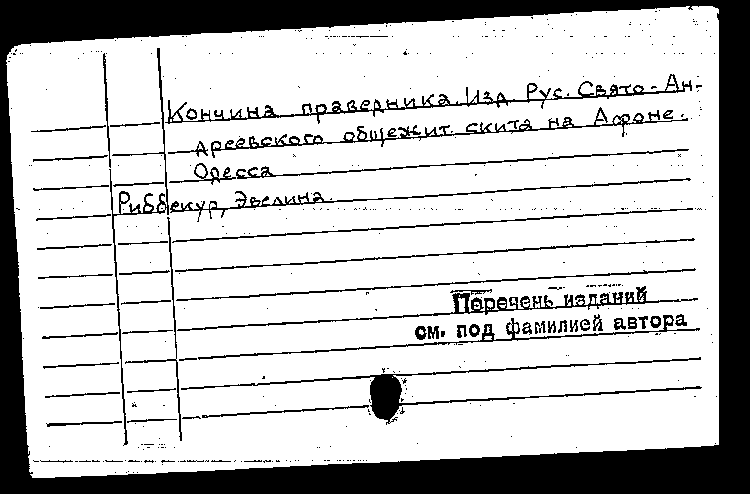 Кончина праведника. Изд. Рус. Свято-Ан-
дреевского общежит. скита на Афоне.
Одесса
Риббекур, Эвелина.
Перечень изданий
см. под фамилией автора